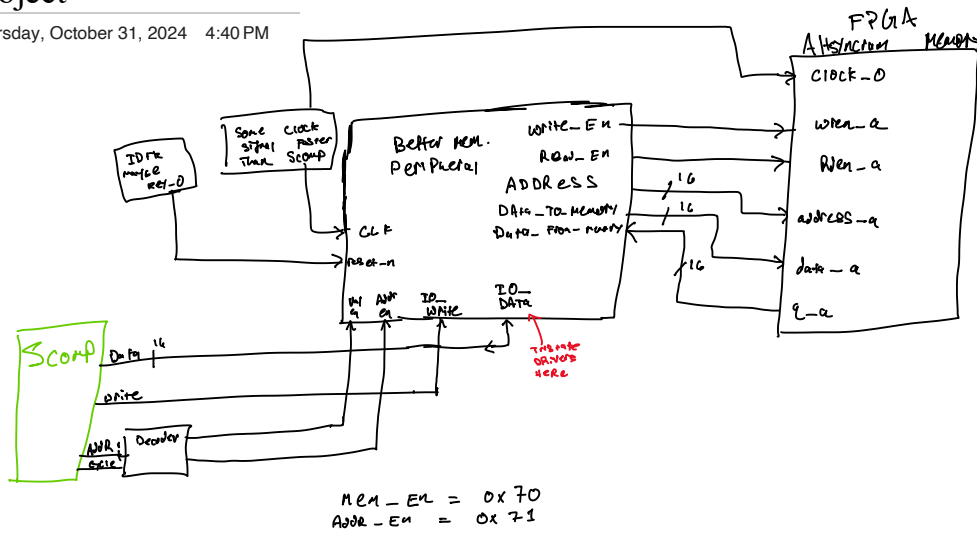 oject
rsday, October 31, 2024 4:40 PM
FPGA
Altsyncram Memory
Clock_0
wren_a
Rden_a
address_a
data_a
q_a
Some Clock
signal faster
Than Scomp
IDTK
maybe
Key_0
Better mem.
Peripheral
Write_En
Read_En
ADDRESS
DAta_To_Memory
Data_From_memory
16
16
16
CLK
reset_n
Addr
en
IO_
Write
IO_
DATA
Tristate
DRivers
HERE
Scomp
Data
16
write
AddR
cycle
Decoder
Mem_En = 0x70
Addr_En = 0x71